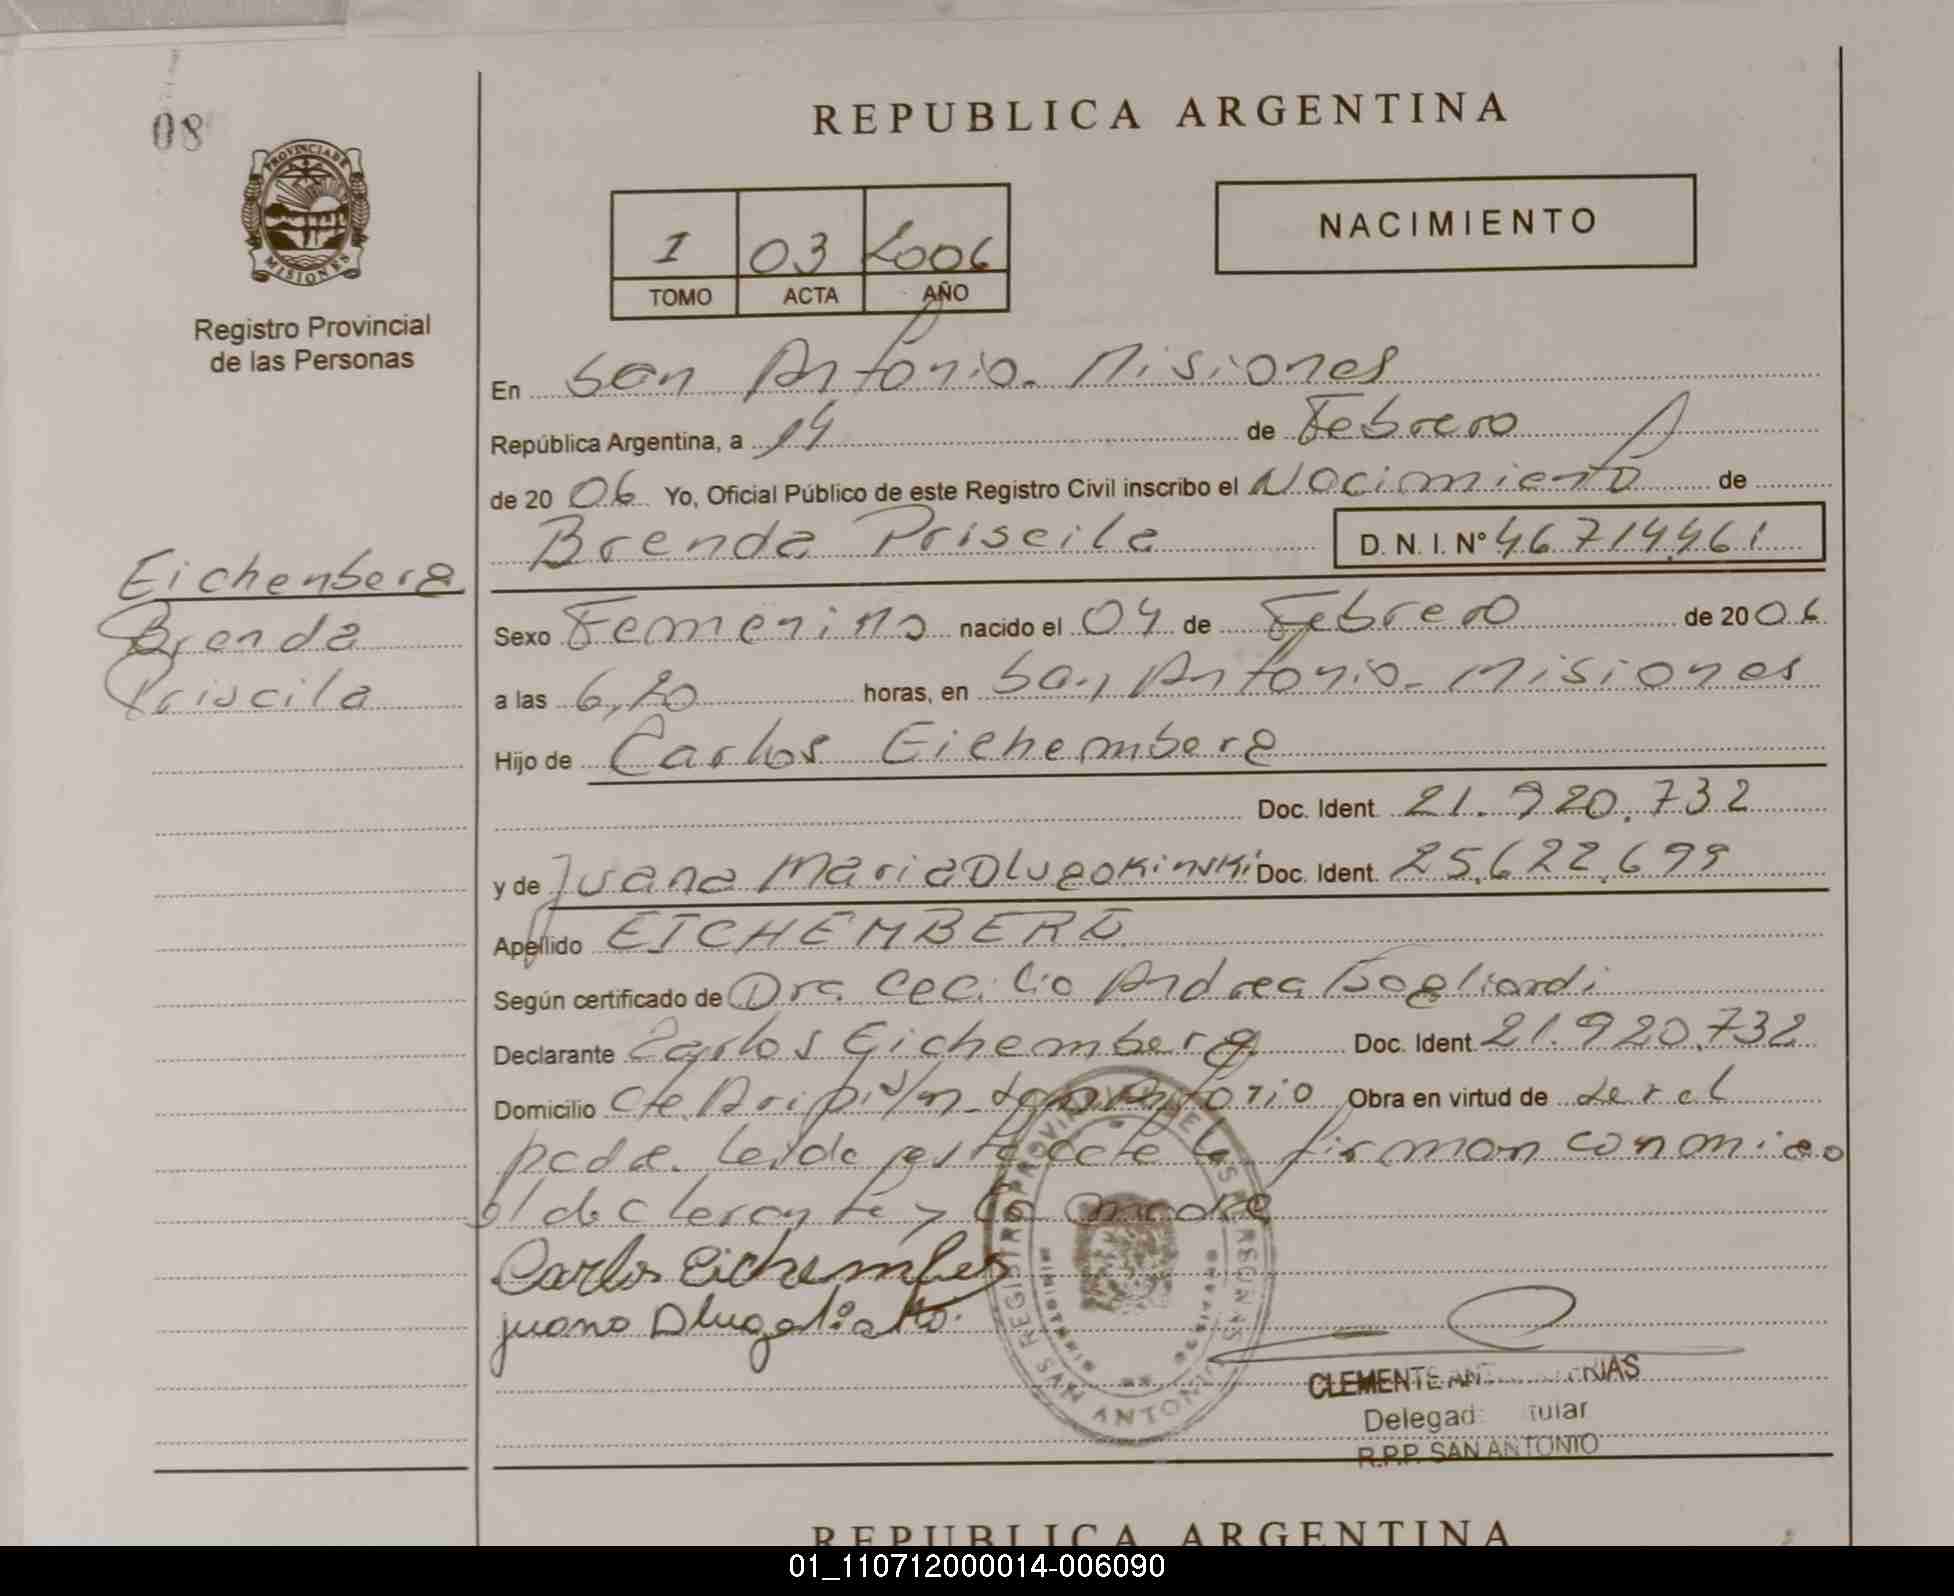 08
PROVINCIA DE
MISIONES
Registro Provincial
de las Personas
Eichenberg
Brenda
Priscila
REPUBLICA ARGENTINA
I 03 2006
TOMO ACTA AÑO
NACIMIENTO
En San Antonio - Misiones
República Argentina, a 14 de Febrero
de 20 06 Yo, Oficial Público de este Registro Civil inscribo el Nacimiento de
Brenda Priscila D. N. I. N° 46.714.461
Sexo Femenino nacido el 04 de Febrero de 20 06
a las 6,20 horas, en San Antonio - Misiones
Hijo de Carlos Eichemberg
Doc. Ident. 21.920.732
y de Juana Maria Dlugokinski Doc. Ident. 25.622.699
Apellido EICHEMBERG
Según certificado de Dra. Cecilia Andrea Gagliardi
Declarante Carlos Eichemberg Doc. Ident. 21.920.732
Domicilio Cte. s/n - San Antonio Obra en virtud de ser el
padre. Leida esta acta la firman conmigo
el declarante y la madre
Carlos Eichember
juana
SAN ANTONIO
CLEMENTE
R.P.P. SAN ANTONIO
REPUBLICA ARGENTINA
01_110712000014-006090